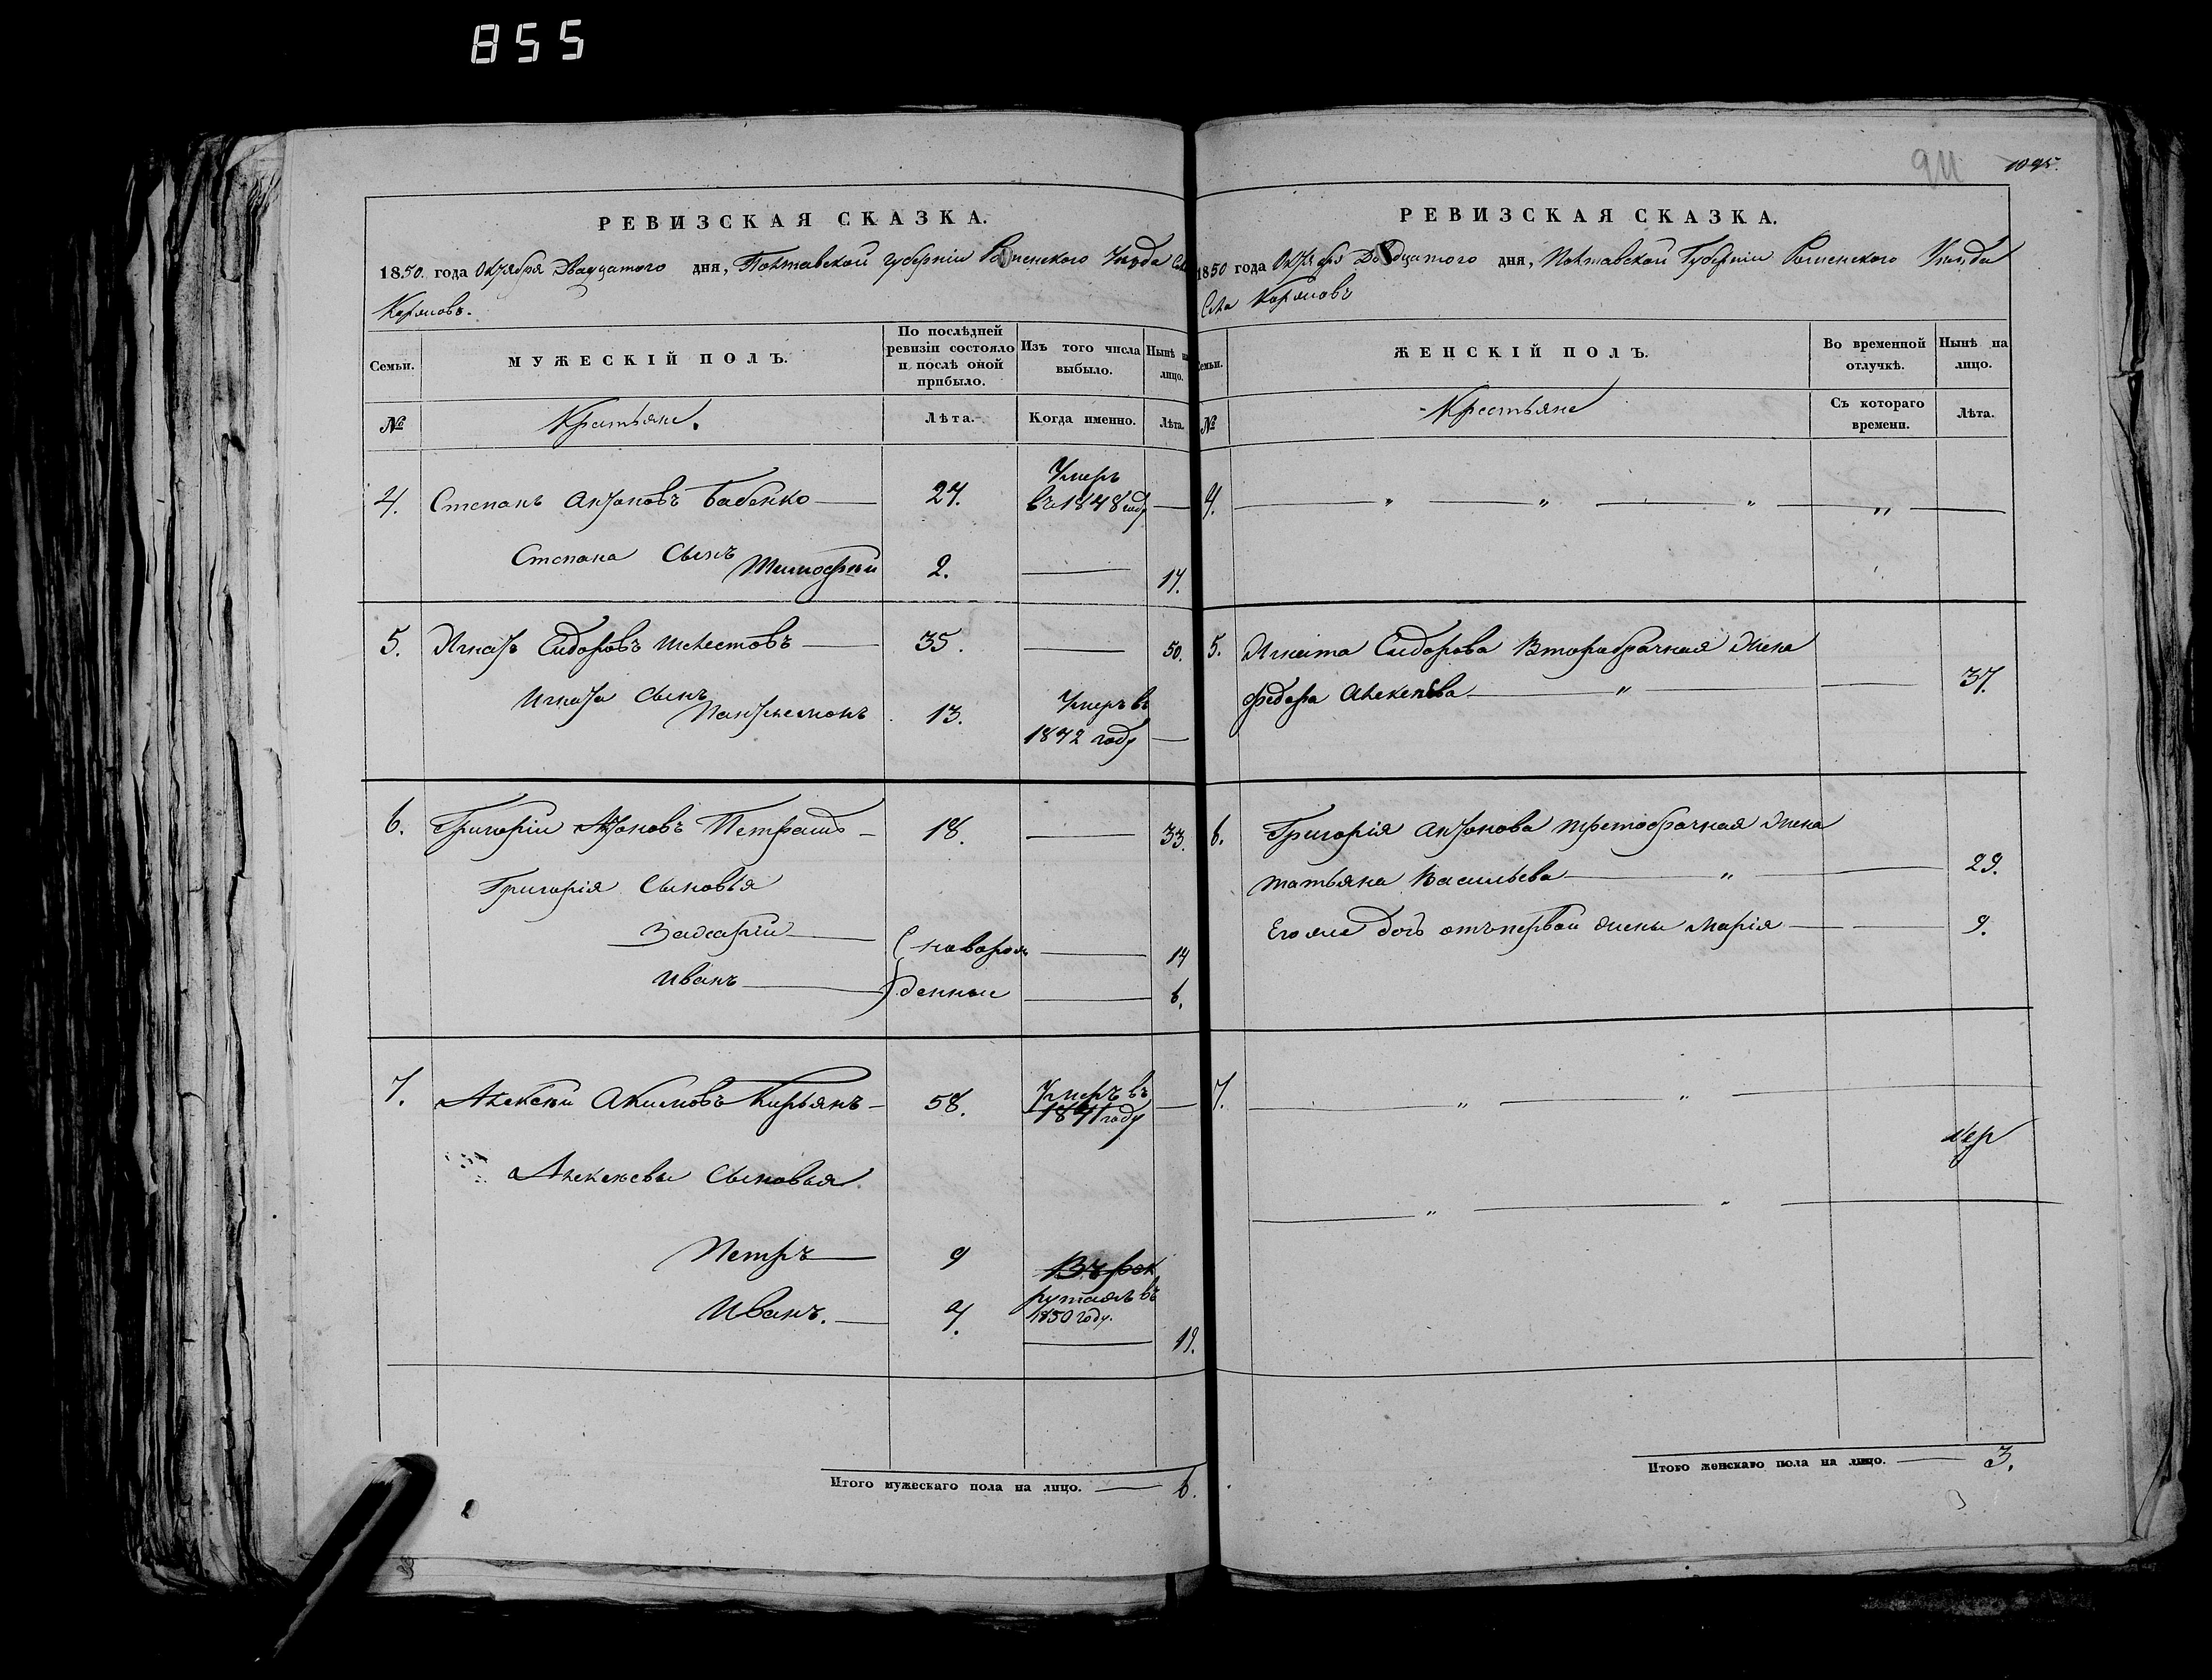 855
94
1095.
РЕВИЗСКАЯ СКАЗКА.
1850. года Октября Двадцатого дня, Полтавской губерніи Роменского Уѣзда
Коровинъ.
Семьи.
МУЖЕСКІЙ ПОЛЪ.
По послѣдней ревизіи состояло и послѣ оной прибыло.
Изъ того числа выбыло.
Нынѣ на лицо.
№
Крестьяне.
Лѣта.
Когда именно.
Лѣта.
4. Степанъ Антоновъ Бабенко — 27. Умеръ въ 1848 году —
Степана сынъ Тимофѣй 2. — 17.
5. Игнатъ Сидоровъ Шелестовъ — 35. — 50.
Игната сынъ Пантелемонъ 13. Умеръ въ 1842 году —
6. Григорій Антоновъ Петрашъ — 18. — 33.
Григорія Сыновья
Захарій — новорож — 14
Иванъ — денные — 6.
7. Алексѣй Акимовъ Кирьянъ — 58. Умеръ въ 1841 году —
Алексѣевы Сыновья
Петръ — 9 Въ рек
рутахъ въ 1850 году.
Иванъ. — 4. — 19.
Итого мужескаго пола на лицо. — 6.
РЕВИЗСКАЯ СКАЗКА.
1850 года Октября Двадцатого дня, Полтавской Губерніи Роменского Уѣзда
Села
Семьи.
ЖЕНСКІЙ ПОЛЪ.
Во временной отлучкѣ.
Нынѣ на лицо.
№
Крестьяне
Съ котораго времени.
Лѣта.
4. — " — " — " — " —
5. Игната Сидорова Второбрачная жена
Федора Алексѣева — " — — 37.
6. Григорія Антонова третобрачная жена
Татьяна Васильева — " — — 29.
Его же дочь отъ первой жены Марія — — 9.
7. — " — " —
— " — " —
Итого женскаго пола на лицо. — 3.